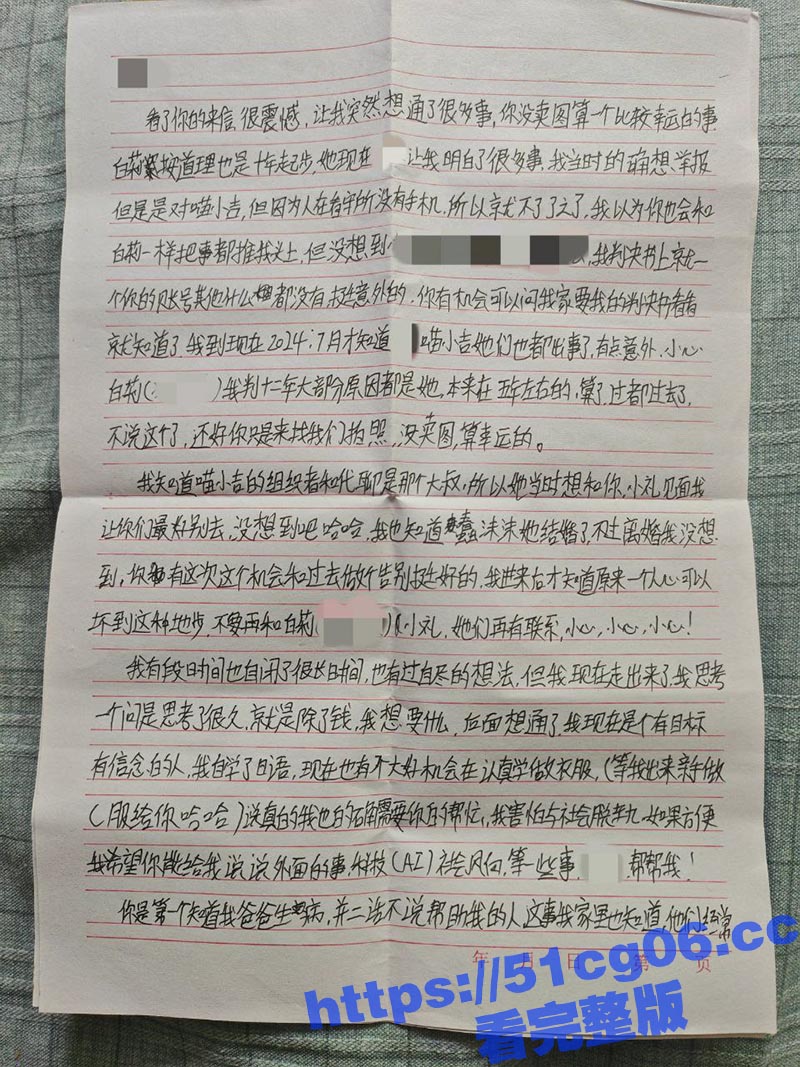 看了你的来信,很震憾,让我突然想通了很多事,你没卖图算一个比较幸运的事
白莉按道理也是十年起步,她现在 让我明白了很多事,我当时的确想举报
但是是对喵小吉,但因为人在看守所没有手机,所以就不了了之了,我以为你也会和
白莉一样把事都推我头上,但没想到 ,我判决书上就一
个你的账号其他什么都没有,挺意外的,你有机会可以问我家要我的判决书看看
就知道了,我到现在2024.7月才知道 喵小吉她们也都出事了,有点意外,小心
白莉( )我判十二年大部分原因都是她,本来在五年左右的,算了,过都过去了,
不说这个了,还好你只是来找我们拍照,没卖图,算幸运的。
我知道喵小吉的组织者和代聊是那个大叔,所以她当时想和你,小礼见面我
让你们最好别去,没想到吧哈哈,我也知道蠢沫沫她结婚了,不过离婚我没想
到,你有这次这个机会和过去做个告别挺好的,我进来后才知道原来一个人心可以
坏到这种地步,不要再和白莉( )小礼,她们再有联系,小心,小心,小心!
我有段时间也自闭了很长时间,也有过自尽的想法,但我现在走出来了,我思考
一个问是思考了很久,就是除了钱,我想要什么,后面想通了,我现在是个有目标
有信念的人,我自学了日语,现在也有个大好机会在认真学做衣服,(等我出来亲手做
C服给你哈哈)说真的我也的确需要你的帮忙,我害怕与社会脱轨,如果方便
我希望你能给我说说外面的事,科技(AI)社会风向,等一些事, 帮帮我!
你是第一个知道我爸爸生病,并二话不说帮助我的人,这事我家里也知道,他们经常
年 月 日 第 页
https://51cg06.cc
看完整版